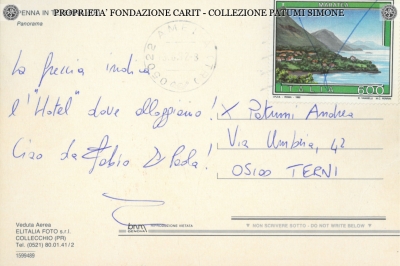 PROPRIETA' FONDAZIONE CARIT - COLLEZIONE PATUMI SIMONE
PENNA IN
Panorama
MARATEA
ITALIA
600
La freccia indica
l'"Hotel" dove alloggiamo!
Ciao da Fabio & Paola!
X Patumi Andrea
Via Umbria, 42
05100 TERNI
Veduta Aerea
EUTALIA FOTO s.r.l.
COLLECCHIO (PR)
Tel. (0521) 80.01.41/2
RIPRODUZIONE VIETATA
NON SCRIVERE SOTTO - DO NOT WRITE BELOW